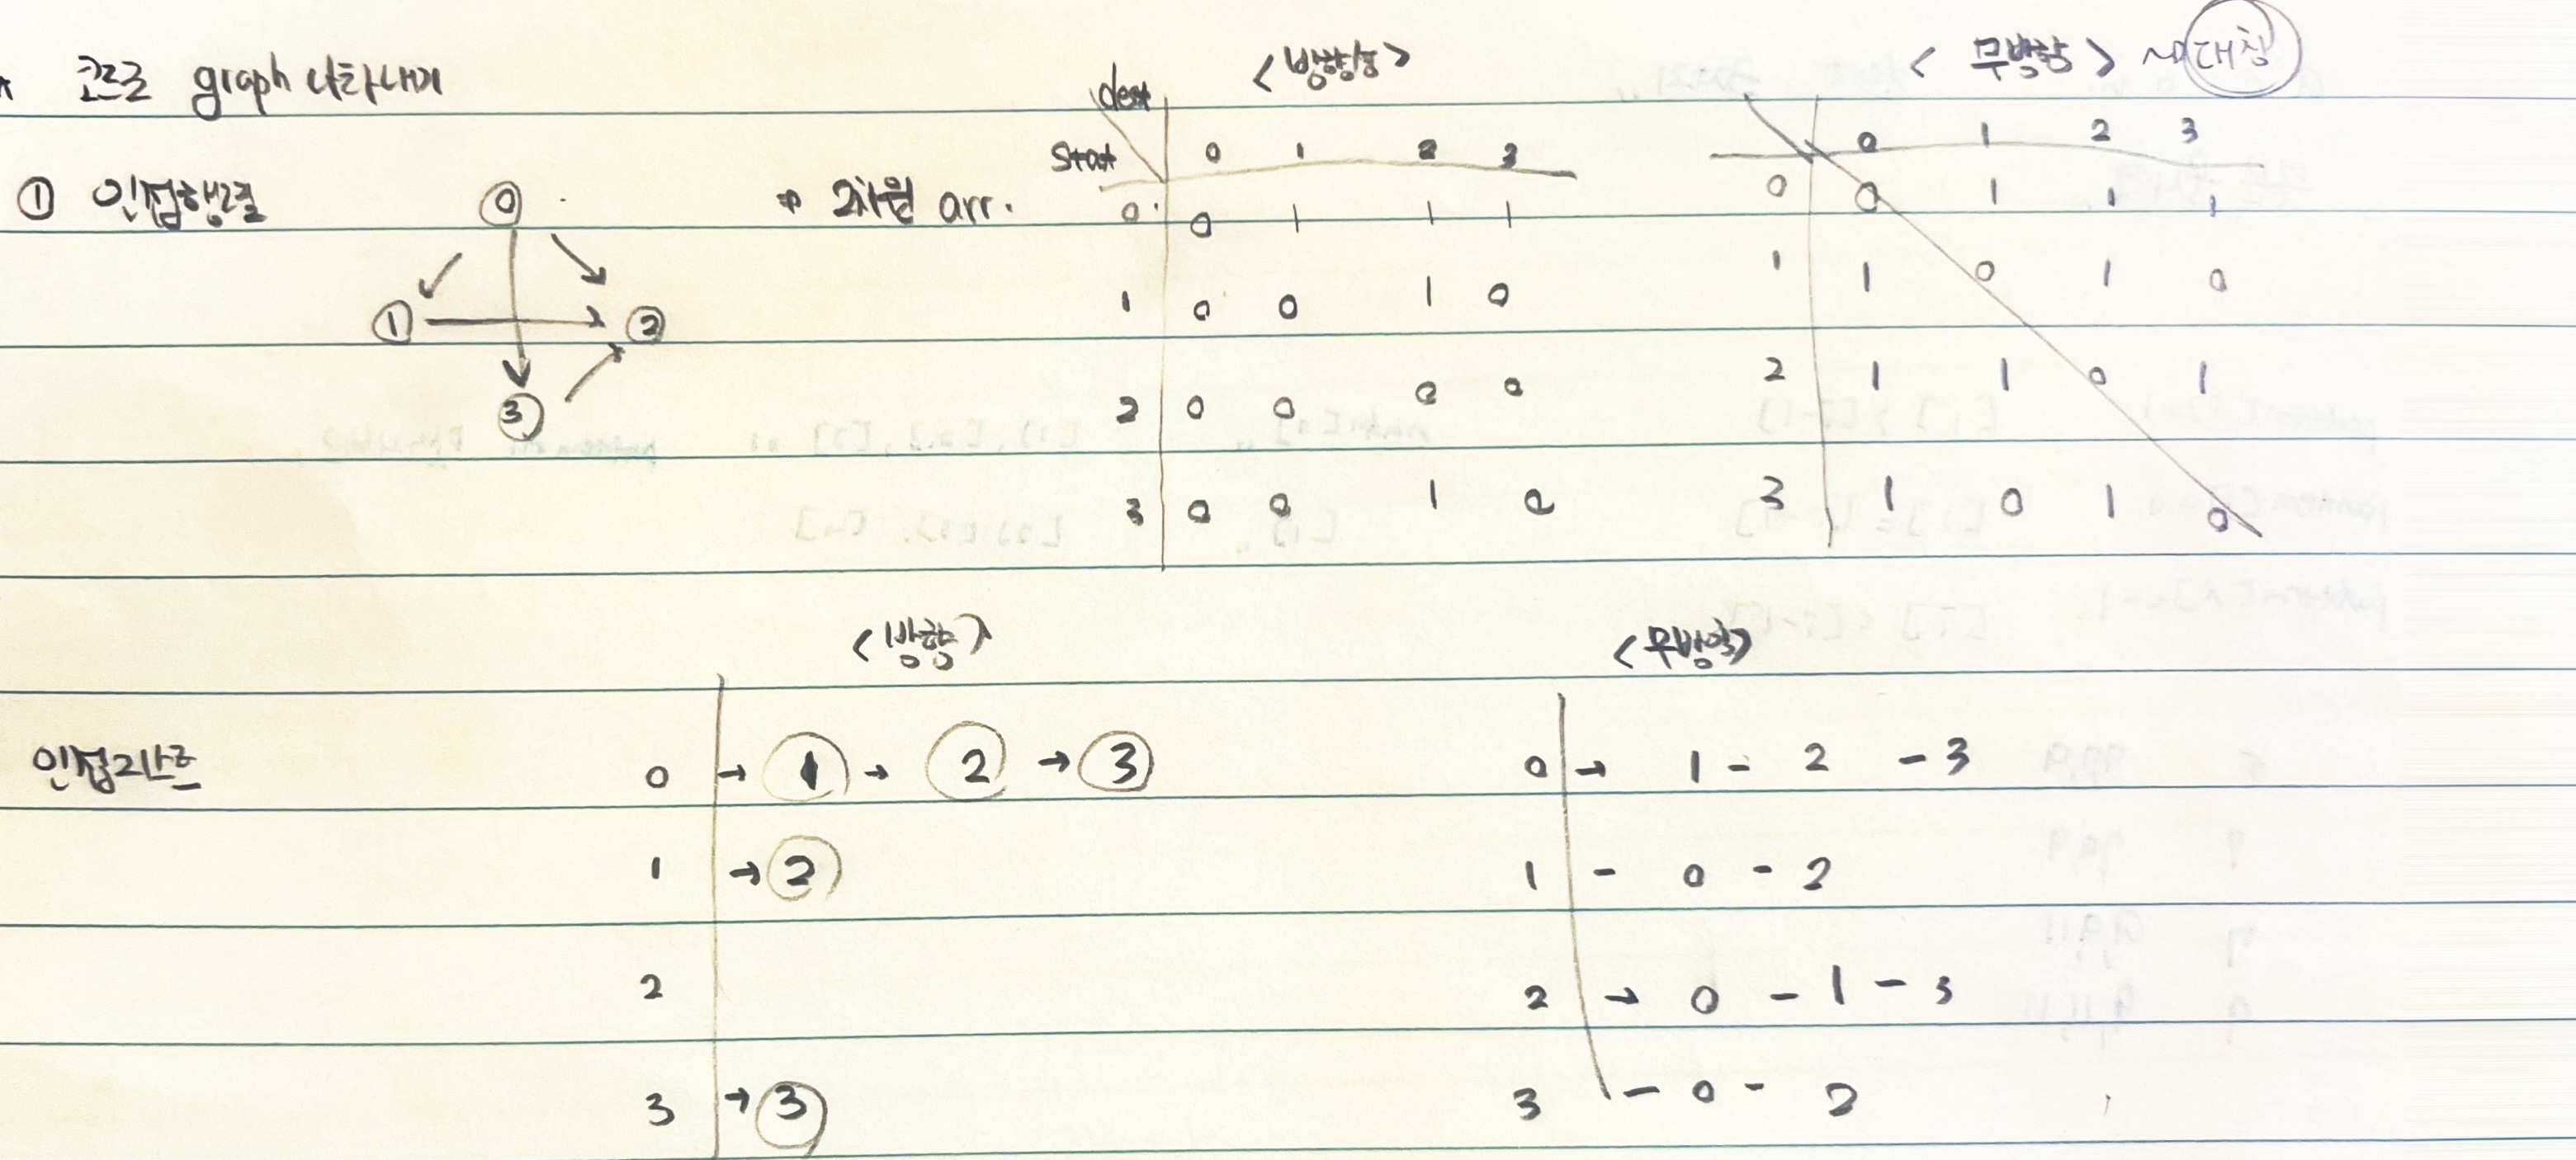 코드로 graph 나타내기
① 인접행렬
⓪
① ②
③
⇒ 2차원 arr.
<방향성>
dest
start 0 1 2 3
0 0 1 1 1
1 0 0 1 0
2 0 0 0 0
3 0 0 1 0
<무방향> ~ 대칭
0 1 2 3
0 0 1 1 1
1 1 0 1 0
2 1 1 0 1
3 1 0 1 0
인접리스트
<방향>
0 → ① → ② → ③
1 → ②
2
3 → ③
<무방향>
0 → 1 - 2 - 3
1 - 0 - 2
2 → 0 - 1 - 3
3 - 0 - 2